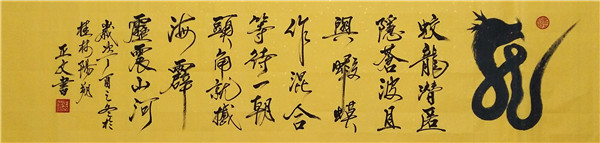 蛟龍潛匿
隱蒼波且
與蝦蟆
作混合
等待一朝
頭角就撼
海霹
靂震山河
歲次丁酉之冬於
桂林陽朔
正文書